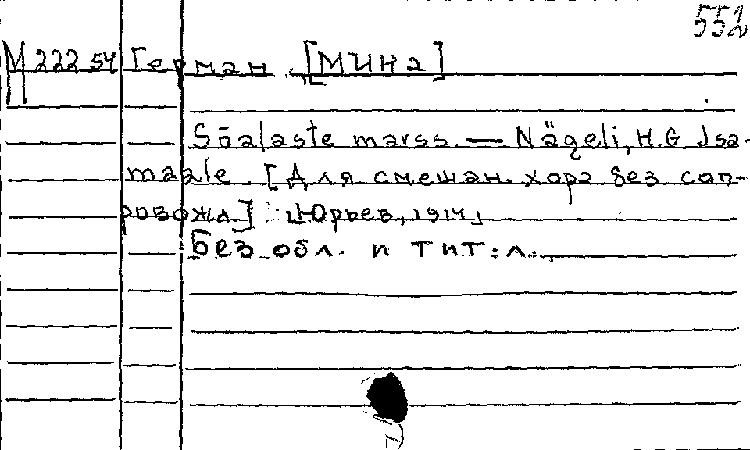 552
М 222 54 Герман [Мина]
П
Sõalaste marss. — Nägeli, H.G Isa-
maale. [Для смешан. хора без соп-
ровожд.] Юрьев, 1914,
Без обл. и тит. л.